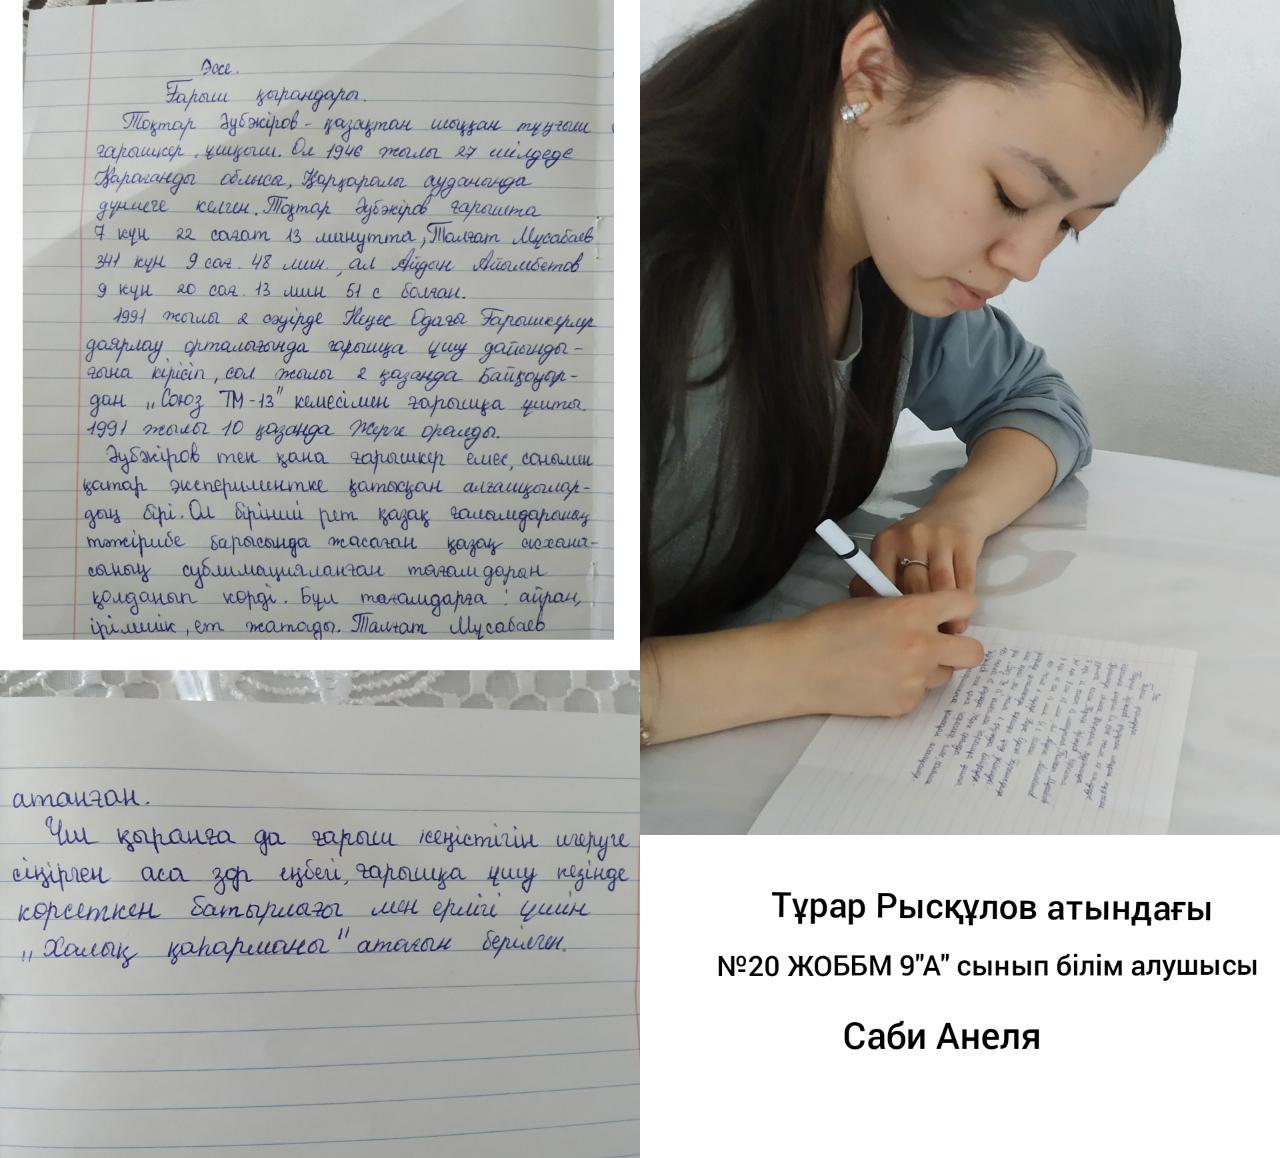 Эссе.
Ғарыш қырандары.
Тоқтар Әубәкіров - қазақтан шыққан тұңғыш
ғарышкер, ұшқыш. Ол 1946 жылы 27 шілдеде
Қарағанды облысы, Қарқаралы ауданында
дүниеге келген. Тоқтар Әубәкіров ғарышта
7 күн 22 сағат 13 минутта, Талғат Мұсабаев
341 күн 9 сағ. 48 мин., ал Айдын Айымбетов
9 күн 20 сағ. 13 мин 51 с болған.
1991 жылы 2 сәуірде Кеңес Одағы Ғарышкерлер
даярлау орталығында ғарышқа ұшу дайынды-
ғына кірісіп, сол жылы 2 қазанда Байқоңыр-
дан „Союз ТМ-13" кемесімен ғарышқа ұшты.
1991 жылы 10 қазанда Жерге оралды.
Әубәкіров тек қана ғарышкер емес, сонымен
қатар экспериментке қатысқан алғашқылар-
дың бірі. Ол бірінші рет қазақ ғалымдарының
тәжірибе барысында жасаған қазақ асхана-
сының сублимацияланған тағамдарын
қолданып көрді. Бұл тағамдарға: айран,
ірімшік, ет жатады. Талғат Мұсабаев
атанған.
Үш қыранға да ғарыш кеңістігін игеруге
сіңірген аса зор еңбегі, ғарышқа ұшу кезінде
көрсеткен батырлығы мен ерлігі үшін
„Халық қаһарманы" атағын берілген.
Тұрар Рысқұлов атындағы
№20 ЖОББМ 9"А" сынып білім алушысы
Саби Анеля